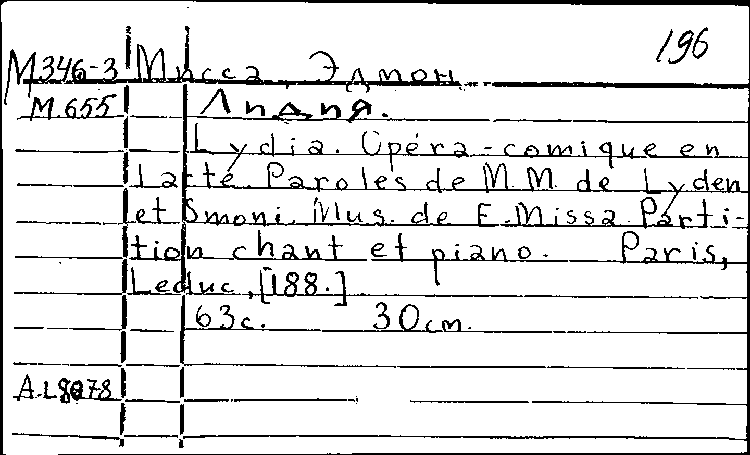 196
М346-3 Мисса, Эдмон
М.655 Лидия.
Lydia. Opéra-comique en
1 acte. Paroles de M.M. de Lyden
et Smoni. Mus. de E. Missa. Parti-
tion chant et piano. Paris,
Leduc, [188.]
63c. 30cm.
A.L8078